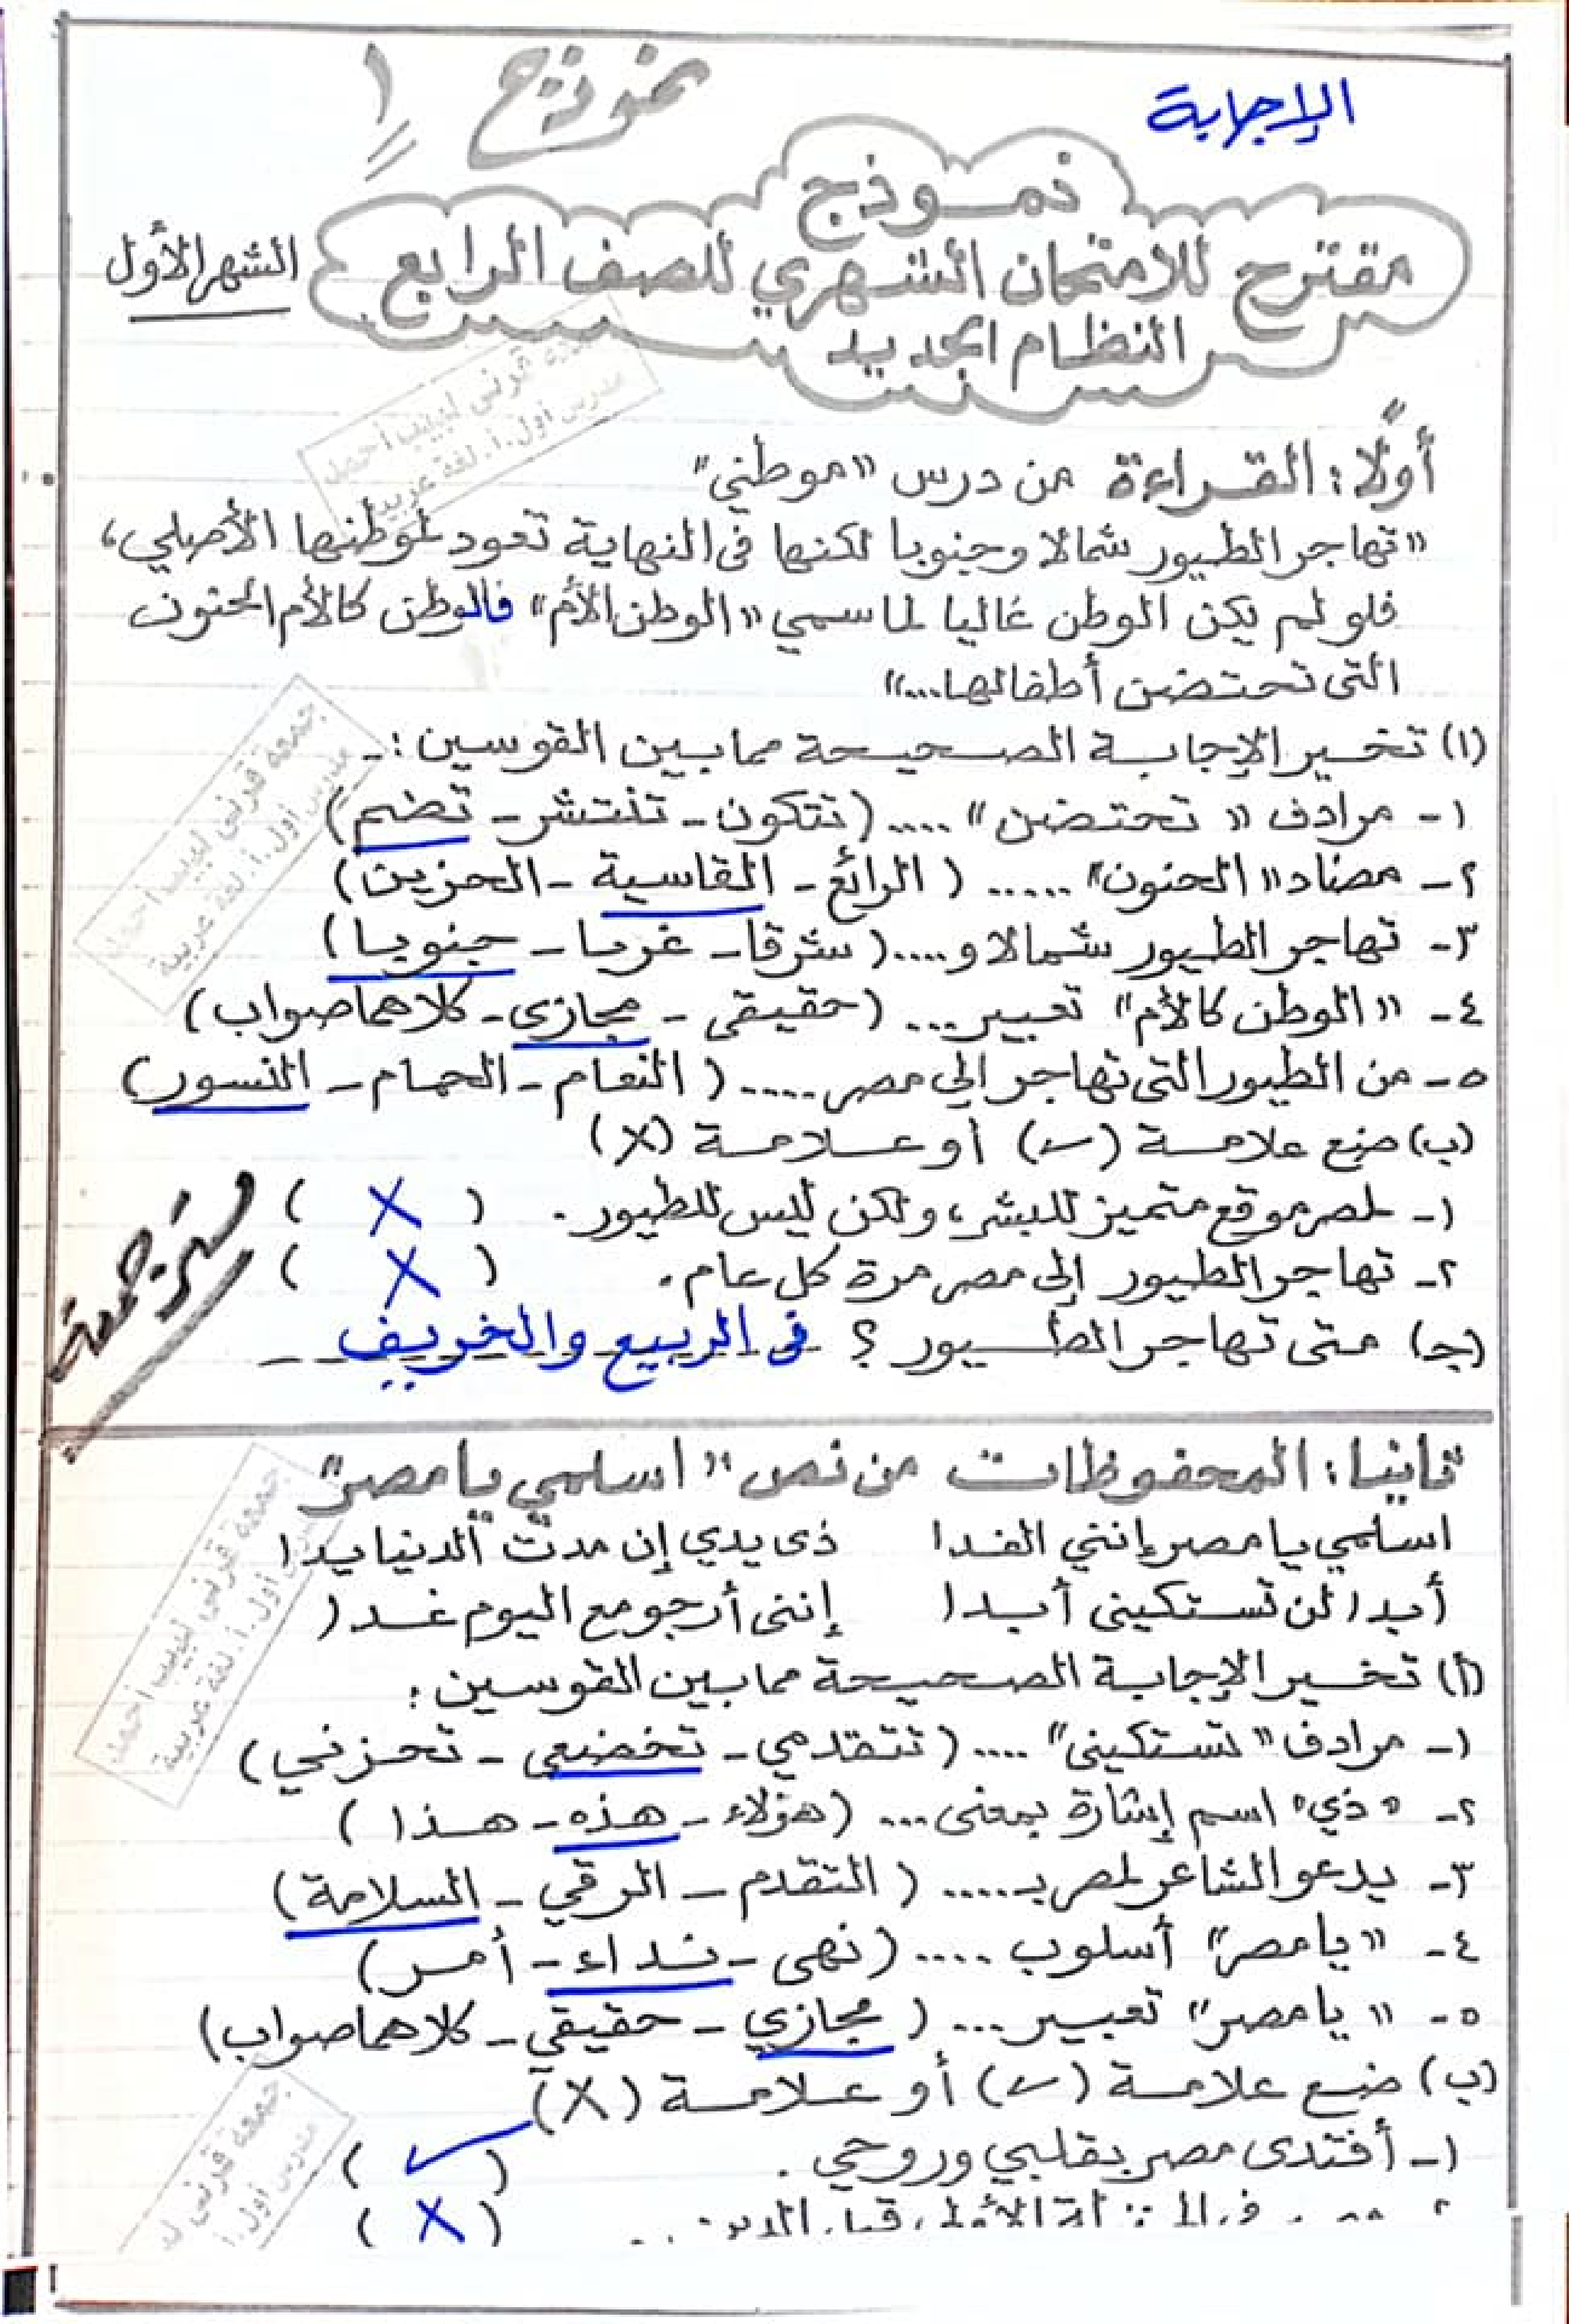 الإجابة
نموذج ١
نموذج
مقترح للامتحان الشهري للصف الرابع
الشهر الأول
النظام الجديد
أولًا: القراءة من درس "موطني"
"تهاجر الطيور شمالا وجنوبا لكنها فى النهاية تعود لموطنها الأصلي،
فلو لم يكن الوطن غاليا لما سمي "الوطن الأم" فالوطن كالأم الحنون
التى تحتضن أطفالها..."
(١) تخير الإجابة الصحيحة مما بين القوسين :-
١- مرادف "تحتضن" .... (تتكون - تنتشر - تضم)
٢- مضاد "الحنون" ..... (الرائع - القاسية - الحزين)
٣- تهاجر الطيور شمالا و.... (شرقا - غربا - جنوبا)
٤- "الوطن كالأم" تعبير ... (حقيقى - مجازى - كلاهما صواب)
٥- من الطيور التى تهاجر إلى مصر ..... (النعام - الحمام - النسور)
(ب) ضع علامة (✓) أو علامة (X)
١- لمصر موقع متميز للبشر، ولكن ليس للطيور. ( X )
٢- تهاجر الطيور إلى مصر مرة كل عام. ( X )
(ج) متى تهاجر الطيور ؟ فى الربيع والخريف
مستر جمعة
ثانيا: المحفوظات من نص "اسلمي يا مصر"
اسلمي يا مصر إنني الفدا ذى يدي إن مدت الدنيا يدا
أبدا لن تستكينى أبدا إننى أرجو مع اليوم غدا
(أ) تخير الإجابة الصحيحة مما بين القوسين :
١- مرادف "تستكينى" .... (تتقدمي - تخضعى - تحزني)
٢- "ذي" اسم إشارة بمعنى ... (هؤلاء - هذه - هذا)
٣- يدعو الشاعر لمصر بـ ..... (التقدم - الرقي - السلامة)
٤- "يا مصر" أسلوب .... (نهى - نداء - أمر)
٥- "يا مصر" تعبير ... (مجازي - حقيقي - كلاهما صواب)
(ب) ضع علامة (✓) أو علامة (X)
١- أفتدى مصر بقلبي وروحي. ( ✓ )
( X )
جمعه قرنى لبيب أحمد
مدرس أول.أ. لغة عربية